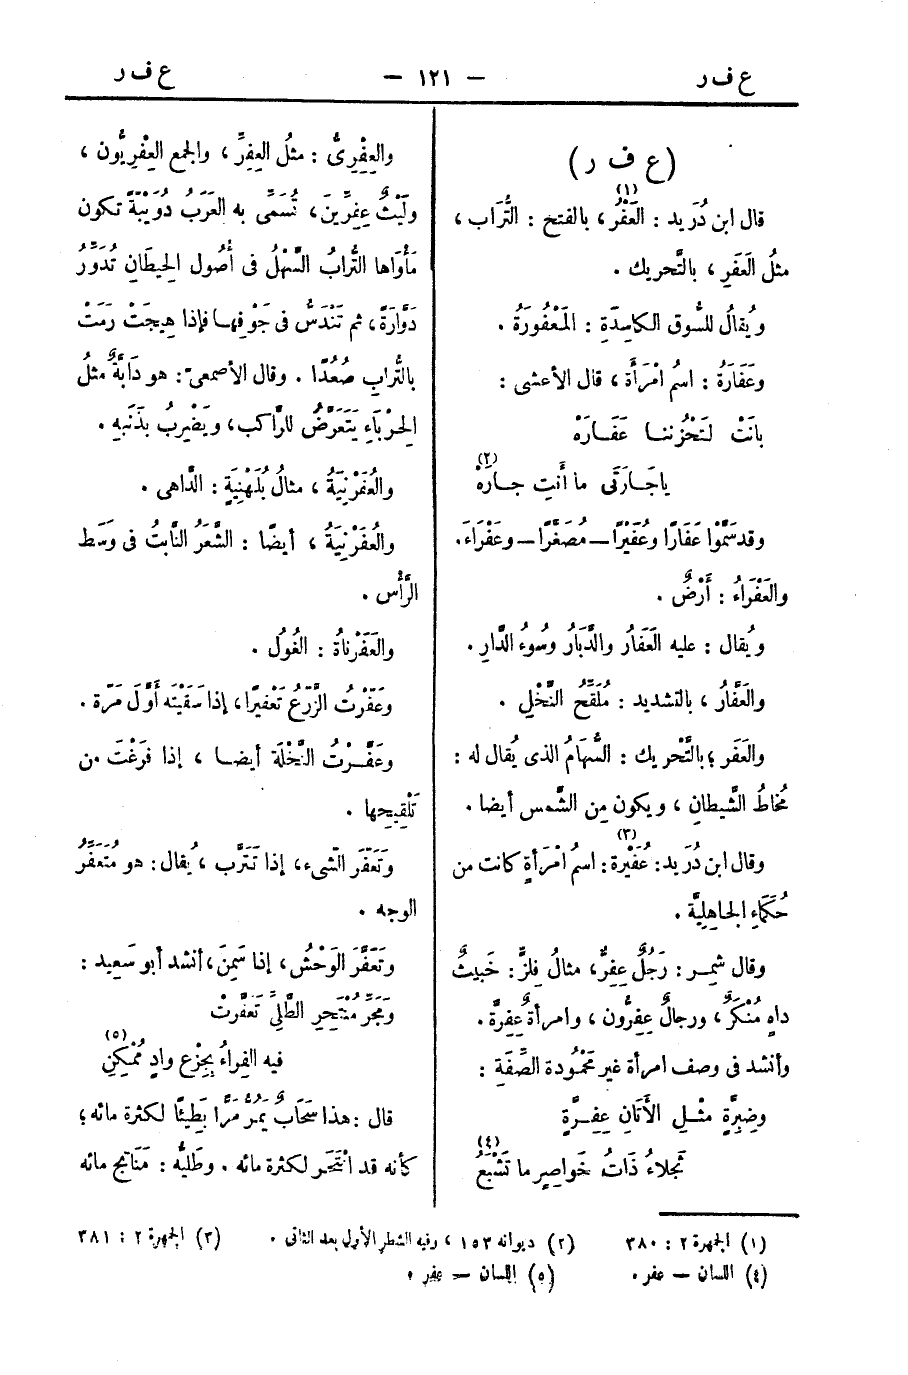 ع ف ر
— ١٢١ —
ع ف ر
(ع ف ر)
قال ابن دُرَيد : العَفْرُ(١) ، بالفتح : التُّرَاب ،
مثلُ العَفَرِ ، بالتَّحريك .
ويُقالُ للسُّوق الكاسِدَةِ : المَعْفُورَةُ .
وعَفَارَةُ : اسمُ امْرَأَة ، قال الأعشى :
بانَتْ لتَحْزُننا عَفَارَهْ
ياجَارَتَى ما أَنتِ جارَهْ(٢)
وقد سَمَّوْا عَفَارًا وعُفَيْرًا — مُصَغَّرًا — وعَفْرَاءَ .
والعَفْرَاءُ : أَرْضٌ .
ويُقال : عليه العَفَارُ والدَّبَارُ وسُوءُ الدَّارِ .
والعَفَّارُ ، بالتشديد : مُلَقِّحُ النَّخْلِ .
والعَفَر ، بالتَّحْريك : السُّهَامُ الذى يُقال له :
مُخاطُ الشَّيطانِ ، ويكون مِن الشَّمس أيضا .
وقال ابن دُرَيد : عُفَيْرة(٣) : اسمُ امْرَأةٍ كانت من
حُكَمَاءِ الجاهِلِيَّة .
وقال شمِر : رَجُلٌ عِفِرٌّ ، مثالُ فِلِزٍّ : خَبيثٌ
داهٍ مُنْكَرٌ ، ورجالٌ عِفِرُّون ، وامرأةٌ عِفِرَّةٌ .
وأنشد فى وصف امرأة غيرِ مَحْمُودة الصِّفَةِ :
وضِبِرَّةٍ مثْلِ الأَتَانِ عِفِرَّةٍ
ثَجلاءُ ذَاتُ خَواصِرٍ ما تَشْبَعُ(٤)
والعِفْرِىُّ : مثلُ العِفِرِّ ، والجمع العِفْرِيُّون ،
ولَيْثُ عِفِرِّينَ ، تُسَمَّى به العَرَبُ دُوَيْبَّةً تكون
مَأْوَاها التُّرابُ السَّهْلُ فى أُصُول الحِيطَانِ تُدَوِّرُ
دَوَّارَةً ، ثم تَنْدَسُّ فى جَوْفها فإذا هِيجَتْ رمَتْ
بالتُّرابِ صُعُدًا . وقال الأصمعىّ : هو دَابَّةٌ مثلُ
الحِرْبَاءِ يَتَعَرَّضُ للرَّاكب ، ويَضْرِبُ بذَنَبِه .
والعُفَرْنِيَةُ ، مثالُ بُلَهْنِيَةٍ : الدَّاهى .
والعُفَرْنِيَةُ ، أيضًا : الشَّعَرُ النَّابتُ فى وَسَط
الرَّأْس .
والعَفَرْناةُ : الغُولُ .
وعَفَّرْتُ الزَّرْعَ تَعْفيرًا ، إذا سَقَيْتَه أَوَّلَ مَرّة .
وعَفَّرْتُ النَّخْلَة أيضا ، إذا فَرَغْتَ من
تَلْقِيحِها .
وتَعَفَّرَ الشىء ، إذا تَتَرَّب ، يُقال : هو مُتَعَفِّرُ
الوجه .
وتَعَفَّرَ الوَحْشُ ، إذا سَمِنَ ، أنشد أبو سَعِيد :
ومَجَرِّ مُنْتَحِرِ الطَّلِىِّ تَعَفَّرتْ
فيه الفِراءُ بِجِزْعِ وادٍ مُمْكِنِ(٥)
قال : هذا سَحَابٌ يَمُرُّ مَرًّا بَطِيئًا لكثرة مائه ؛
كأنه قد انْتَحَر لكثرة مائه . وطَلِيُّه : مَنَاتِج مائه
(١) الجمهرة ٢ : ٣٨٠ (٢) ديوانه ١٥٣ ، وفيه الشطر الأول بعد الثانى . (٣) الجمهرة ٢ : ٣٨١
(٤) اللسان — عفر . (٥) اللسان — عفر .